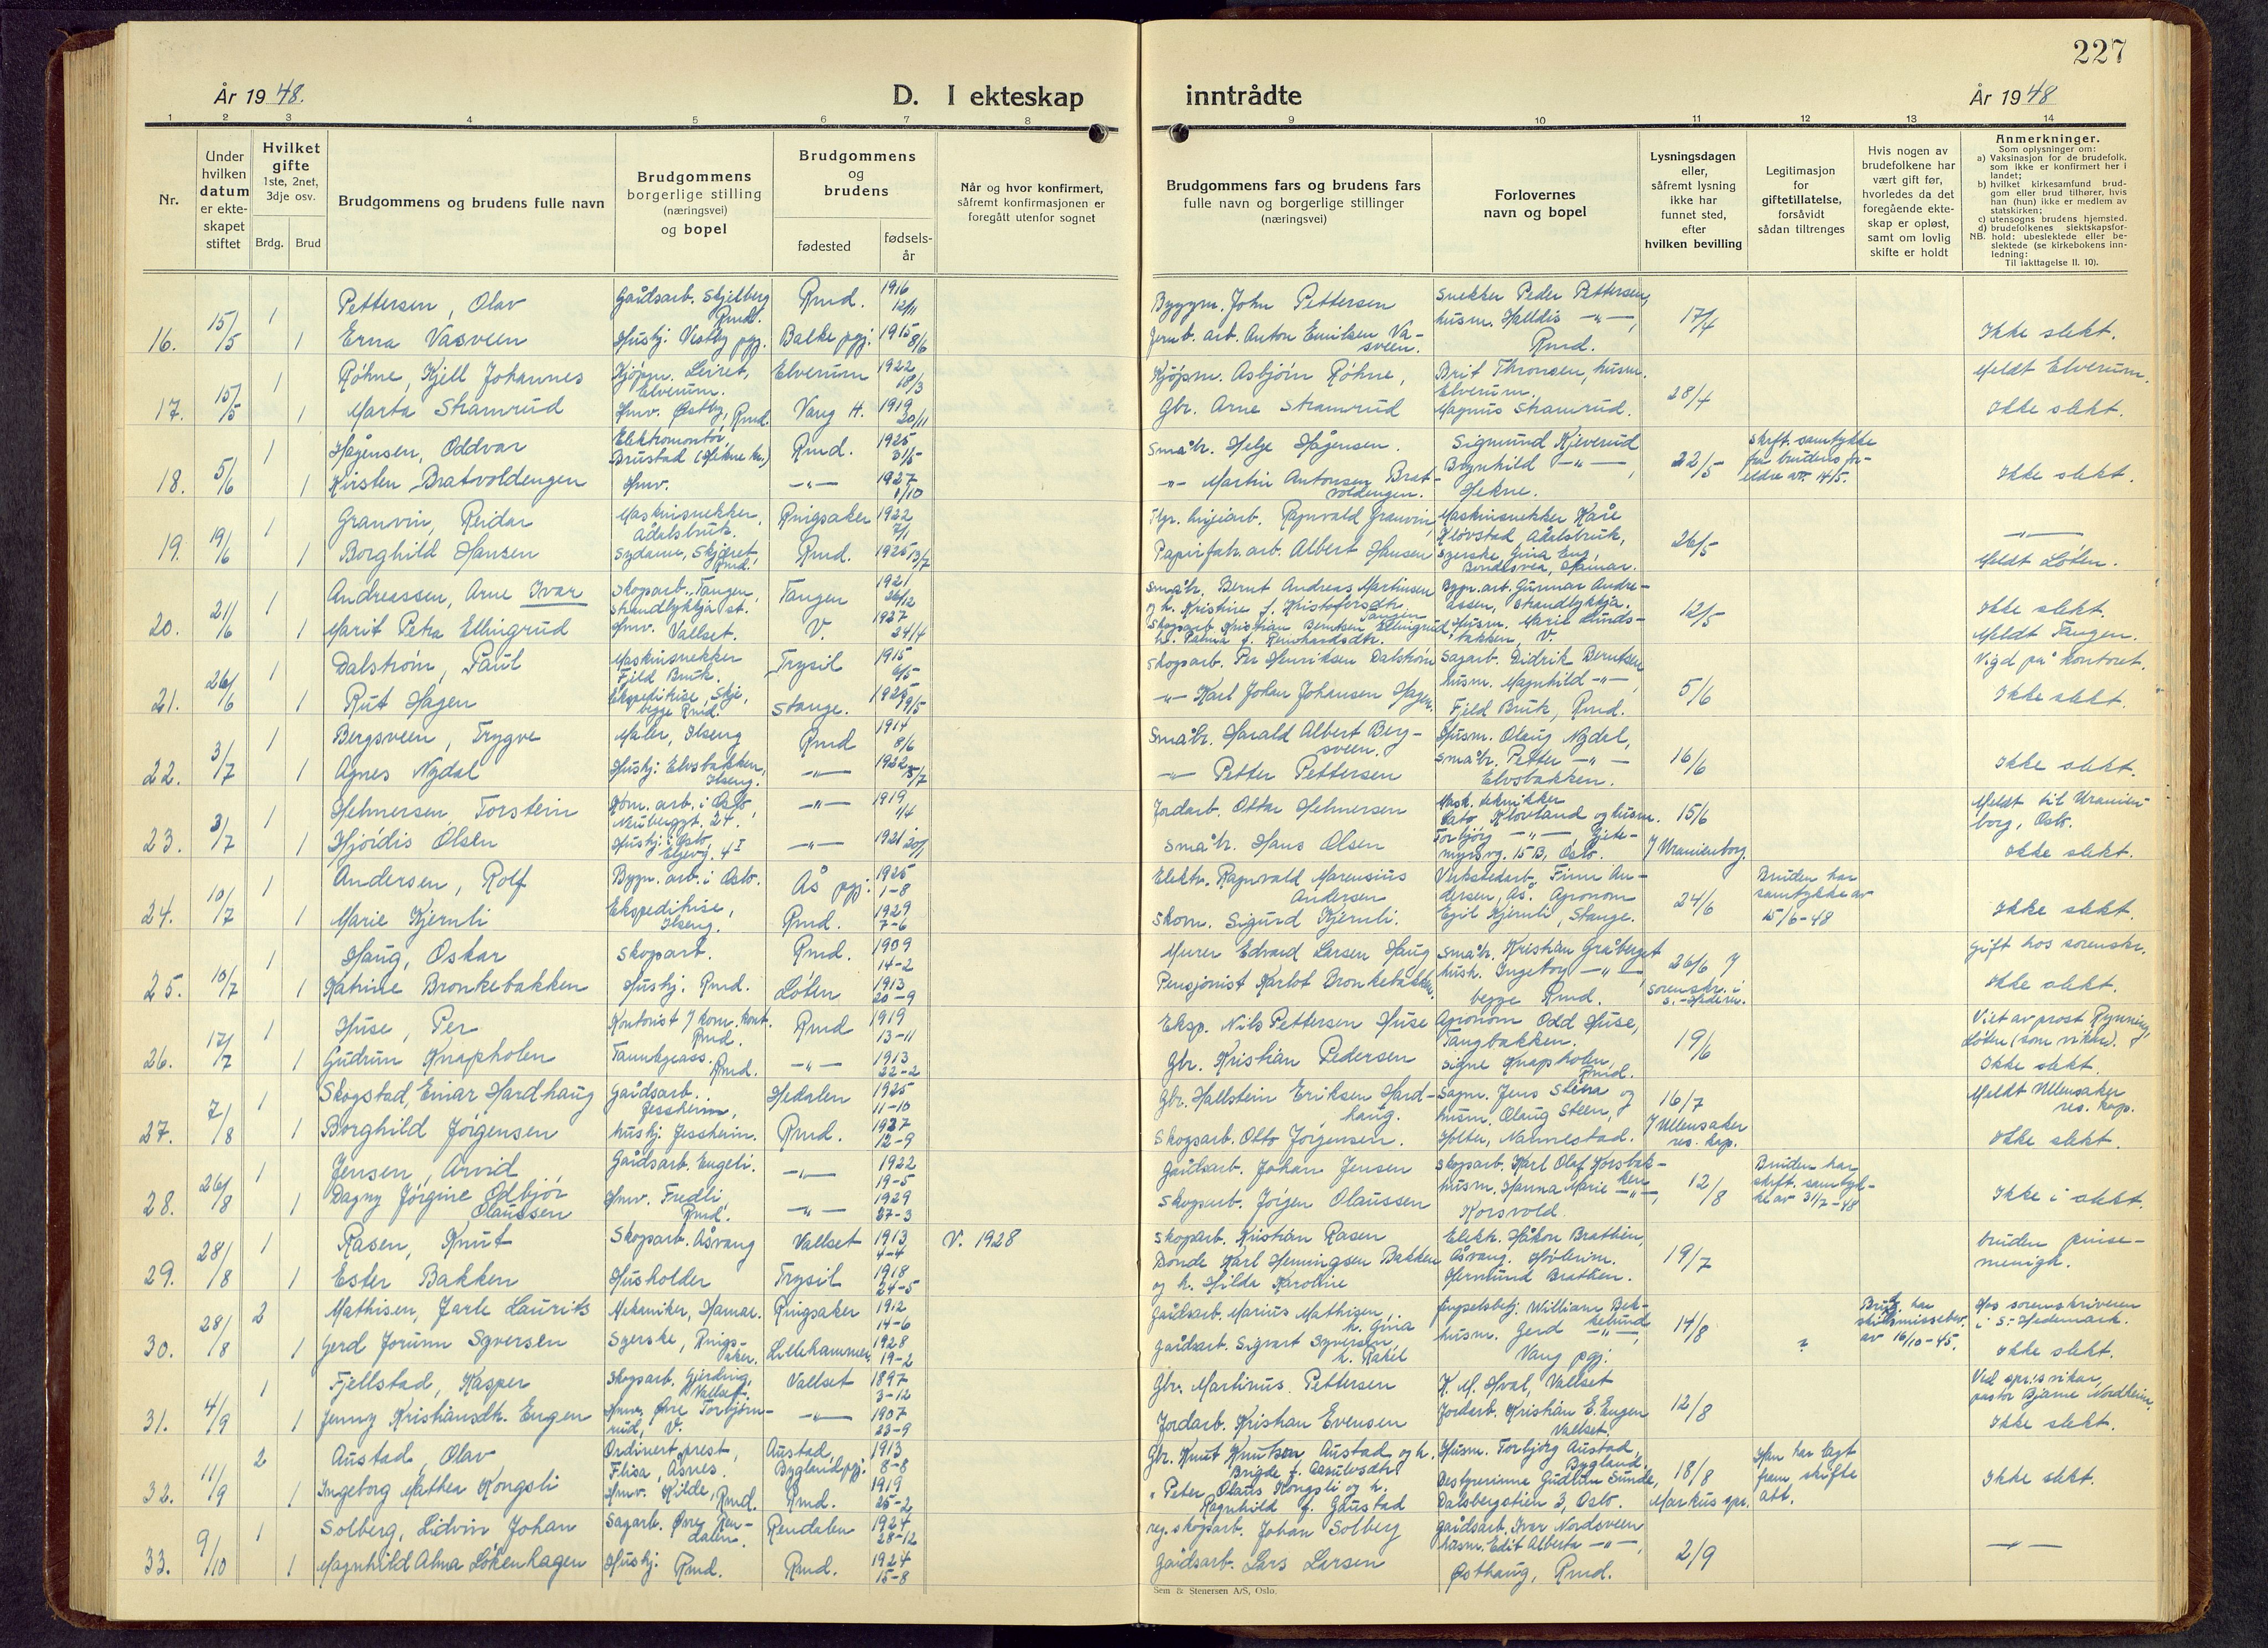 227
År 1948.
D. I ekteskap
inntrådte
År 1948
1 2 3 4 5 6 7 8 9 10 11 12 13 14
Nr.
Under hvilken datum er ekteskapet stiftet
Hvilket gifte
1ste, 2net, 3dje osv.
Brdg. Brud
Brudgommens og brudens fulle navn
Brudgommens borgerlige stilling (næringsvei) og bopel
Brudgommens og brudens
fødested
fødselsår
Når og hvor konfirmert, såfremt konfirmasjonen er foregått utenfor sognet
Brudgommens fars og brudens fars fulle navn og borgerlige stillinger (næringsvei)
Forlovernes navn og bopel
Lysningsdagen eller, såfremt lysning ikke har funnet sted, efter hvilken bevilling
Legitimasjon for giftetillatelse, forsåvidt sådan tiltrenges
Hvis nogen av brudefolkene har vært gift før, hvorledes da det foregående ekteskap er opløst, samt om lovlig skifte er holdt
Anmerkninger.
Som oplysninger om:
a) Vaksinasjon for de brudefolk, som ikke er konfirmert her i landet;
b) hvilket kirkesamfund brudgom eller brud tilhører, hvis han (hun) ikke er medlem av statskirken;
c) utensogns brudens hjemsted.
d) brudefolkenes slektskapsforhold: ubeslektede eller beslektede (se kirkebokens innledning:
NB. Til iakttagelse II. 10).
16. 15/5 1 Pettersen, Olav Gårdsarb. Skjelberg Rmd. Rmd. 1916 12/11 Byggm. John Pettersen Snekker Peder Pettersen, 17/4
1 Erna Vasveen Hushj. Vestby pgj. Balke pgj. 1915 8/6 Jernb. arb. Anton Emilsen Vasveen. husm. Halldis -"-, Rmd. Ikke slekt.
17. 15/5 1 Røhne, Kjell Johannes Kjøpm. Leiret, Elverum. Elverum 1922 18/3 Kjøpm. Asbjørn Røhne, Brit Thronsen, husm. Elverum. 28/4 Meldt Elverum.
1 Marta Stramrud Hmv. Østby, Rmd. Vang H. 1919 20/11 Gbr. Arne Stramrud Magnus Stramrud. Ikke slekt.
18. 5/6 1 Hågensen, Oddvar Elektromontør, Brustad (Hekne ) Rmd. 1925 31/5 Småbr. Helge Hågensen. Sigmund Kjeverud 22/5 skrift. samtykke fra brudens foreldre av 14/5.
1 Kirsten Bratvoldengen Hmv. -"- 1927 1/10 -"- Martin Antonsen Bratvoldengen. Brynhild -"-, Hekne. Ikke slekt.
19. 19/6 1 Granvin, Reidar Maskinsnekker, Ådalsbruk. Ringsaker 1922 7/1 Ragnvald Granvin, Maskinsnekker Kåre Kløvstad, Ådalsbruk, 26/5 -"-
1 Borghild Hansen Sydame, Skjæret, Rmd. Rmd. 1925 13/7 Papirfabr. arb. Albert Hansen Syerske, Gina Eng, Hamar. Meldt Løten.
20. 21/6 1 Andreassen, Arne Ivar Skogsarb. Tangen, Strandlykkja st. Tangen 1921 26/12 Småbr. Bernt Andreas Martinsen og h. Kristine f. Kristofersdtr. Tangen Bygn. arb. Gunnar Andreassen, Strandlykkja. 12/5 Ikke slekt.
1 Marit Petra Ellingrud Hmv. Vallset. V. 1927 24/4 Skogsarb. Kristian Berntsen Ellingrud, h. Palma f. Reinhardsdtr. Husm. Marie Lundsbakken, V. Meldt Tangen.
21. 26/6 1 Dalstrøm, Paul Maskinsnekker Fjeld Bruk. Trysil 1915 6/5 Skogsarb. Per Henriksen Dalstrøm Sagarb. Didrik Berntsen 5/6 Vigd på kontoret.
1 Rut Hagen Ekspeditrise, Skje, begge Rmd. Stange. 1925 9/5 -"- Karl Johan Johansen Hagen. husm. Magnhild -"-, Fjeld Bruk, Rmd. Ikke slekt.
22. 3/7 1 Bergsveen, Trygve Maler, Ilseng Rmd 1914 8/6 Småbr. Harald Albert Bergsveen. Husm. Olaug Nydal, 16/6
1 Agnes Nydal Hushj. Elvsbakken, Ilseng. -"- 1922 5/7 -"- Petter Pettersen småbr. Petter -"- Elvsbakken. Ikke slekt.
23. 3/7 1 Helmersen, Torstein Kom. arb. i Oslo Neubergt. 24. -"- 1919 1/4 Jordarb. Ottar Helmersen Mask. tekniker Cato Kløvland og husm. 15/6 Meldt til Uranienborg, Oslo.
1 Hjørdis Olsen Hushj. i Oslo, 4 I -"- 1921 20/1 Småbr. Hans Olsen Torbjørg -"- Gjetemyrsvg. 15 B, Oslo. I Uranienborg. Ikke slekt.
24. 10/7 1 Andersen, Rolf Bygn. arb. i Oslo. Ås pgj. 1925 1-8 Elektr. Ragnvald Marensius Andersen Verkstedarb. Finn Andersen, Ås. Agronom 24/6 Bruden har samtykke av 15/6-48
1 Marie Kjernli Ekspeditrise, Ilseng. Rmd. 1929 7-6 Skom. Sigurd Kjernli. Egil Kjernli, Stange. Ikke slekt.
25. 10/7 1 Haug, Oskar Skogsarb. Rmd. 1909 14-2 Murer Edvard Larsen Haug Småbr. Kristian Gråberget 26/6 I Gift hos sorenskr.
1 Katrine Bronkebakken Hushj. Rmd. Løten 1913 20-9 Pensjonist Karlot Bronkebakken. hush. Ingeborg -"- begge Rmd. sorenskr. i S.-Hedem. Ikke slekt.
26. 17/7 1 Huse, Per Kontorist I kom. kont. Rmd. Rmd 1919 13-11 Eksp. Nils Pettersen Huse Agronom Odd Huse, Tangbakken. 19/6 Viet av prost Rynning, Løten (som vikar).
1 Gudrun Knapholen Tannlegeass. Rmd. -"- 1913 22-2 Gbr. Kristian Pedersen Signe Knapholen, Rmd. Ikke slekt.
27. 7/8 1 Skogstad, Einar Hardhaug Gårdsarb. Jessheim, Hedalen 1925 11-10 Gbr. Hallstein Eriksen Hardhaug. Sagm. Jens Steen og 16/7 Meldt Ullensaker res. kap.
1 Borghild Jørgensen hushj. Jessheim. Rmd. 1927 12-9 Skogsarb. Otto Jørgensen. husm. Olaug Steen, Holter, Nannestad. I Ullensaker res. kap. Ikke slekt.
28. 26/8 1 Jensen, Arvid Gårdsarb. Engeli. -"- 1922 19-5 Gårdsarb. Johan Jensen Skogsarb. Karl Olaf Korsbakken 12/8 Bruden har skrift. samtykke av 31/7-48
1 Dagny Jørgine Odbjør Olaussen Hmv. Fredli, Rmd. -"- 1929 27-3 Skogsarb. Jørgen Olaussen husm. Hanna Marie -"-, Korsvold. Ikke i slekt.
29. 28/8 1 Rasen, Knut Skogsarb. Åsvang Vallset 1913 4-4 V. 1928 Skogsarb. Kristian Rasen Elektr. Håkon Bratlien, Åsvang. 19/7 bruden pinsemenigh.
1 Ester Bakken Husholder Trysil 1918 24-5 Bonde Karl Hemingsen Bakken og h. Hilda Karoline Hermund Bratlien.
30. 28/8 2 Mathisen, Jarle Laurits Mekaniker, Hamar. Ringsaker 1912 14-6 Gårdsarb. Marius Mathisen, h. Gina fengselsbetj. William Bekkelund 14/8 Brudg. har skilsmissebev. av 16/10-45. Hos sorenskriveren i S.-Hedemark.
1 Gerd Jorunn Syversen Syerske, Ringsaker. Lillehammer 1928 19-2 Gårdsarb. Sigvart Syversen, h. Rakel husm. Gerd -"-, Vang pgj. ? Ikke slekt.
31. 4/9 1 Fjellstad, Kasper Skogsarb. Gjerdring, Vallset. Vallset 1897 3-12 Gbr. Martinus Pettersen K. M. Hval, Vallset 12/8 Ved spr.s vikar, pastor Bjarne Nordheim.
1 Jenny Kristiansdtr. Engen Hmv. Øvre Torbjørnrud, V. -"- 1907 23-9 Jordarb. Kristian Evensen Jordarb. Kristian E. Engen Vallset. Ikke slekt.
32. 11/9 2 Austad, Olav Ordinert prest, Flisa, Åsnes. Austad, Bygland pgj. 1913 8-8 Gbr. Knut Knutson Austad og h. Brigde f. Husm. Torbjørg Austad, Bygland. 18/8 Han har lagt fram skifteatt.
1 Ingeborg Mathea Kongsli Hmv. Kilde, Rmd. Rmd. 1919 25-2 " Peter Olaus Kongsli og h. Ragnhild f. Gaustad Bestyrerinne Gudrun Sunde, Dalsbergstien 3, Oslo. Markus spr. Ikke slekt.
33. 9/10 1 Solberg, Lidvin Johan Sagarb. Øvre Rendalen. Rendalen 1924 28-12 reg. skogsarb. Johan Solberg gårdsarb. Ivar Nordsveen 2/9 -"-
1 Magnhild Alma Løkenhagen Hushj. Rmd. Rmd. 1924 15-8 Gårdsarb. Lars Larsen husm. Edit Alberta -"-, Østhaug, Rmd.
Sem & Stenersen A/S, Oslo.